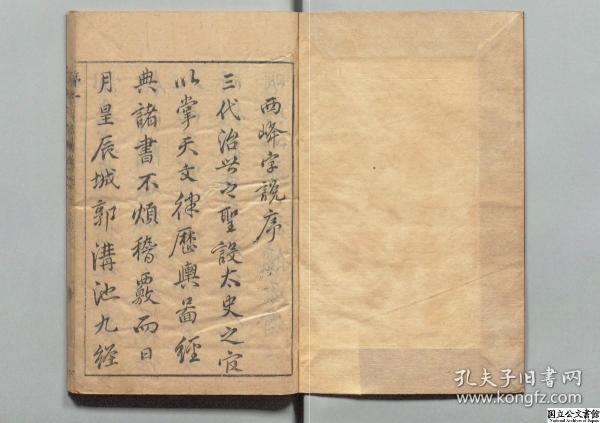 西峰字說序
三代治世之聖設太史之官
以掌天文律歷輿啚經
典諸書不煩稽覈而日
月星辰城郭溝池九經
序一
孔夫子旧书网
www.kongfz.com
国立公文書館
National Archives of Japan